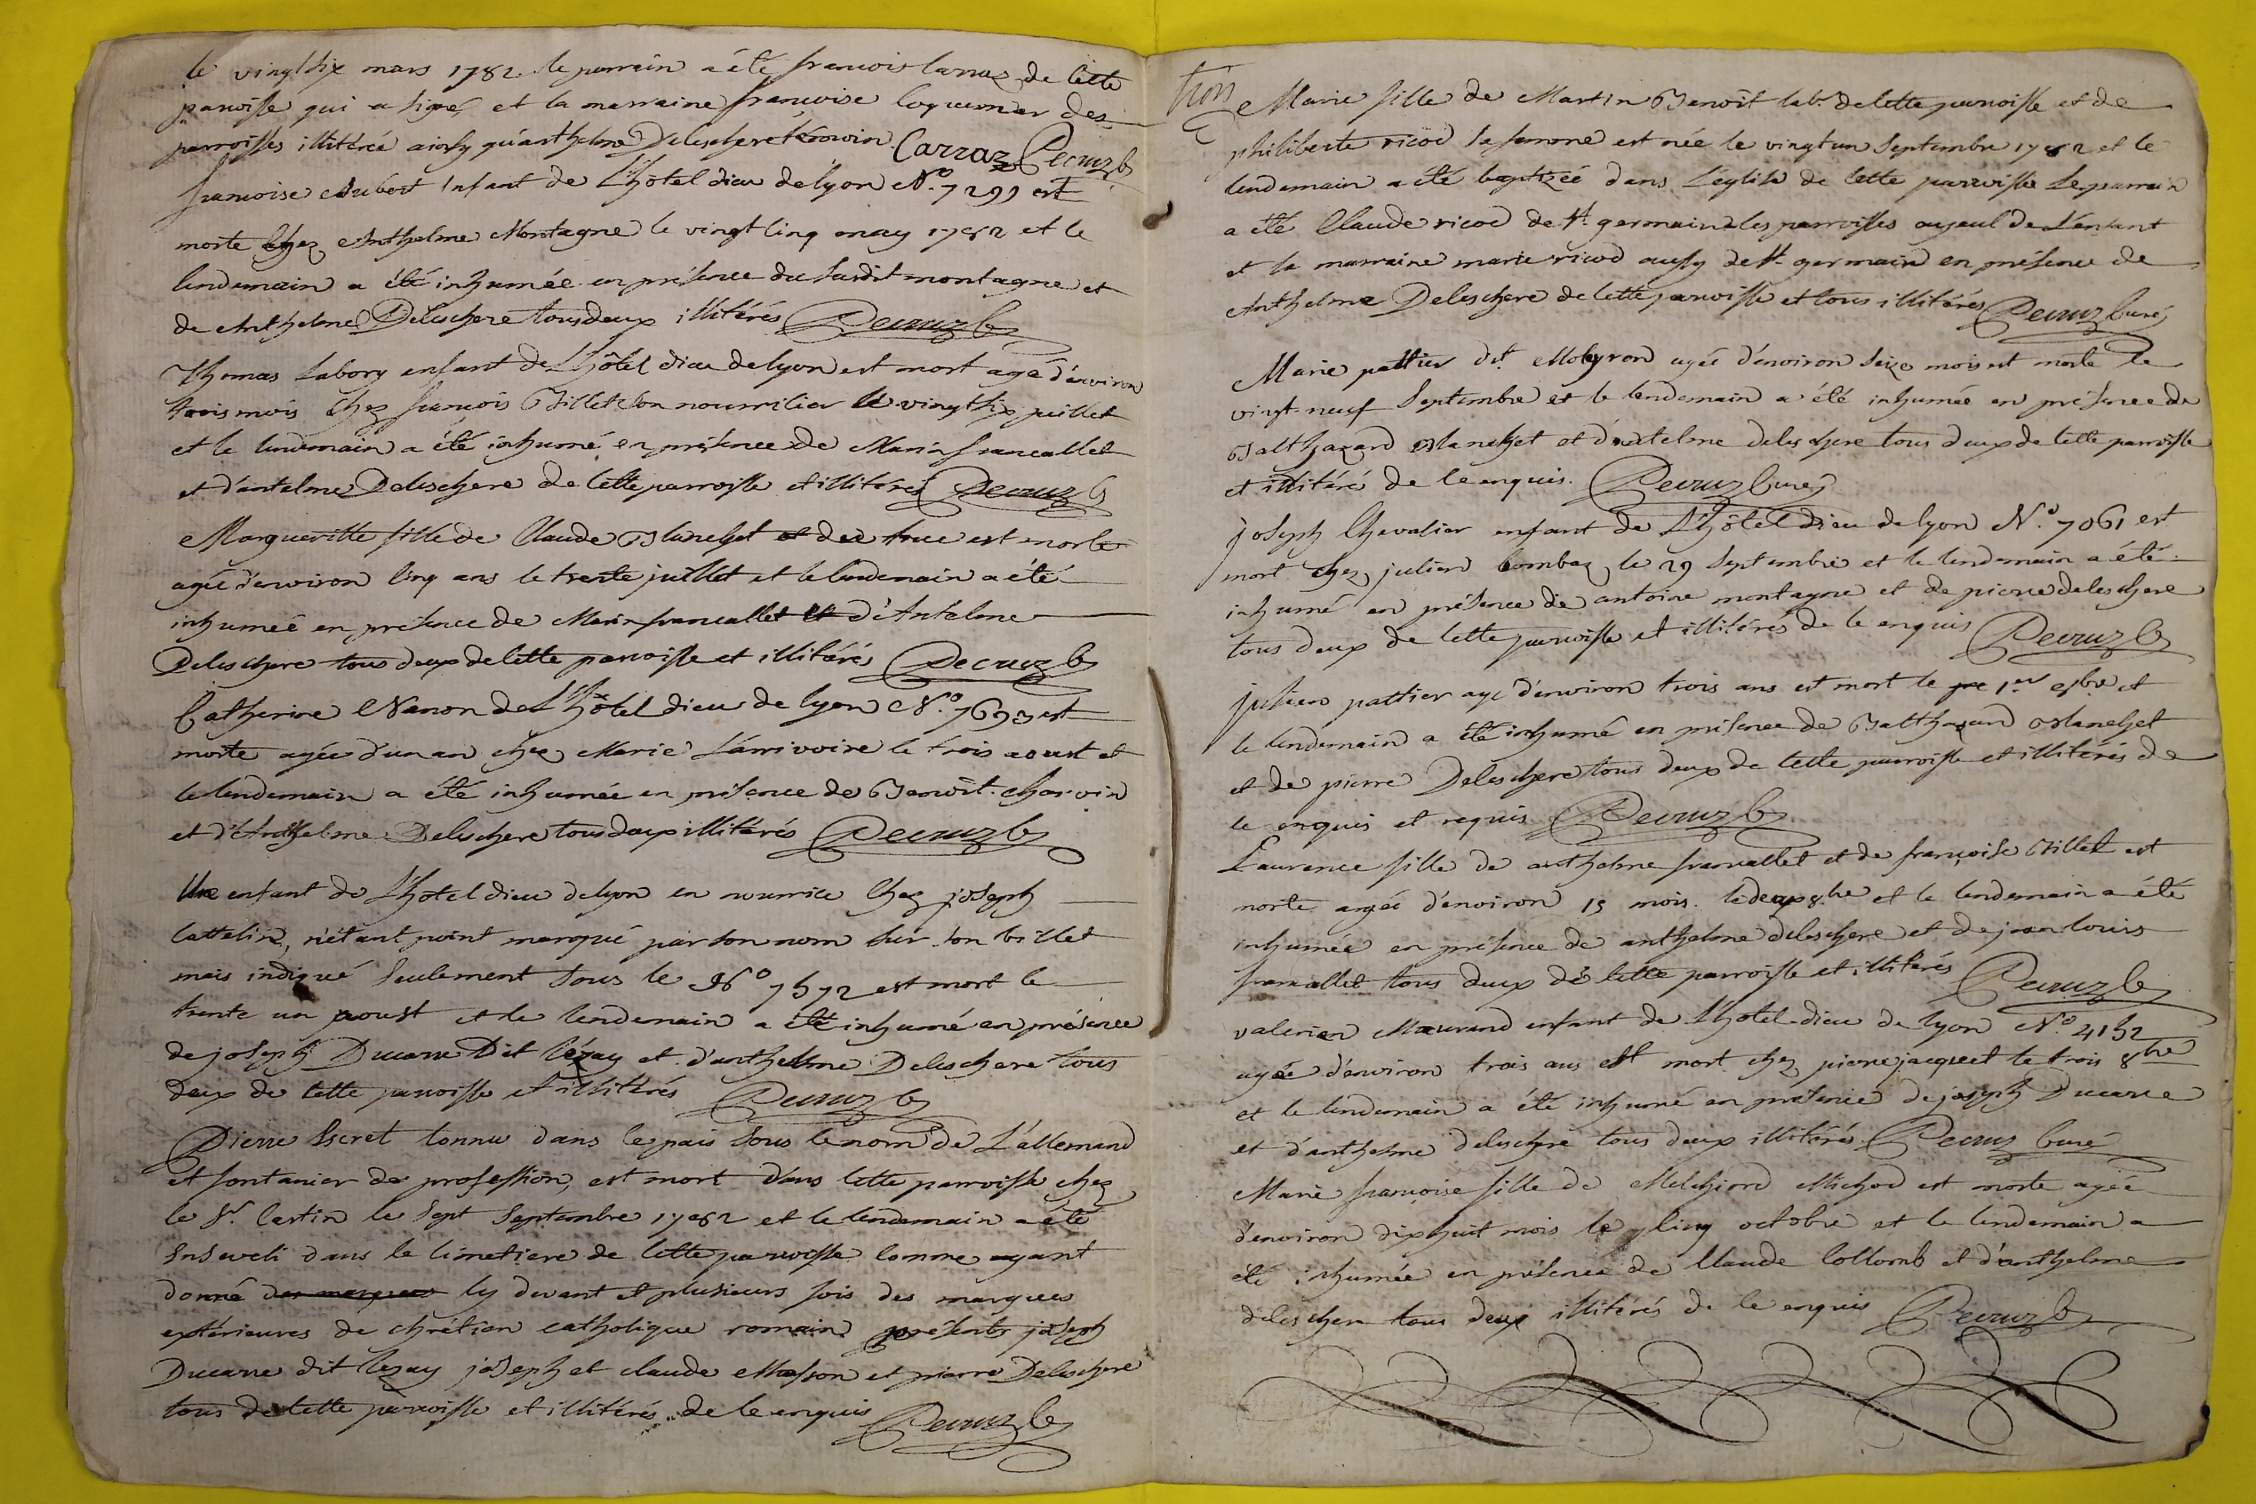 le vingt six mars 1782 le parrain a été francois Carraz de cette
paroisse qui a signé, et la marraine françoise loquemer des
parroisses illitéré ainsy qu'anthelme Deleschere témoin Carraz Decruz C
francoise Aubert Enfant de L'hôtel dieu de lyon N.º 7299 est
morte chez Anthelme Montagne le vingt cinq may 1782 et le
lendemain a été inhumée en présence du susdit montagne et
de Anthelme Deleschere tous deux illitérés Decruz C
Thomas Labory enfant de L'hôtel dieu de lyon est mort agé d'environ
trois mois chez françois Billet son nourricier le vingt six juillet
et le lendemain a été inhumé en présence de Marin francallet
et d'antelme Deleschere de cette parroisse et illitérés Decruz C
Margueritte fille de Claude Blanchet et de true est morte
agée d'environ cinq ans le trente juillet et le lendemain a été
inhumée en présence de Marin francallet et d'Antelme
Deleschere tous deux de cette parroisse et illitérés Decruz C
Catherine Nanon de L'hôtel dieu de lyon N.º 7693 est
morte agée d'un an chez Marie Larrivoire le trois aoust et
le lendemain a été inhumée en présence de Benoit charvin
et d'Anthelme Deleschere tous deux illitérés Decruz C
Une enfant de L'hôtel dieu de lyon en nourrice chez joseph
Cattelin, n'étant point marqué par son nom sur son billet
mais indiqué seulement sous le Nº 7572 est mort le
trente un aoust et le lendemain a été inhumé en présence
de joseph Ducarre Dit lézay et d'anthelme Deleschere tous
deux de cette parroisse et illitérés Decruz C
Pierre Sseret connu dans le païs sous le nom de L'allemand
et fontanier de profession, est mort dans cette parroisse chez
le Sr. Castin le sept septembre 1782 et le lendemain a été
Enseveli dans le cimetiere de cette parroisse comme ayant
donné des marques cy devant et plusieurs fois des marques
extérieures de chrétien catholique romain présents joseph
Ducarre dit lezay joseph et claude Masson et pierre Deleschere
tous de cette parroisse et illitérés de ce enquis Decruz C
trois
Marie fille de Martin Benoit lab.r de cette parroisse et de
philiberte ricod sa femme est née le vingt un septembre 1782 et le
lendemain a été baptizée dans L'église de cette parroisse Le parrain
a été Claude ricod de St. germain les parroisses ayeul de L'enfant
et la marraine marie ricod aussy de St. germain en présence de
Anthelme Deleschere de cette parroisse et tous illitérés Decruz Curé
Marie pattier dit Moleyron agée d'environ seize mois est morte le
vingt-neuf septembre et le lendemain a été inhumée en présence de
Balthazard Blanchet et d'antelme deleschere tous deux de cette parroisse
et illitérés de ce enquis. Decruz Curé
joseph Chevalier enfant de L'hôtel dieu de lyon N.º 7061 est
mort chez julien bombaz le 29 septembre et le lendemain a été
inhumé en présence de antoine montagne et de pierre deleschere
tous deux de cette parroisse et illitérés de ce enquis Decruz C
julien pattier agé d'environ trois ans est mort le pre 1.er 8bre et
le lendemain a été inhumé en présence de Balthazard Blanchet
et de pierre Deleschere tous deux de cette parroisse et illitérés de
ce enquis et requis Decruz C
Laurence fille de anthelme francallet et de françoise Billet est
morte agée d'environ 15 mois le deux 8.bre et le lendemain a été
inhumée en présence de anthelme deleschere et de jean louis
francallet tous deux de cette parroisse et illitérés Decruz C
valerien Maurand enfant de L'hotel-dieu de lyon N.º 4152
agée d'environ trois ans est mort chez pierre jacquet le trois 8bre
et le lendemain a été inhumé en présence de joseph Ducarre
et d'anthelme deleschere tous deux illitérés Decruz Curé
Marie françoise fille de Melchiord Michod est morte agée
d'environ dixhuit mois le cinq octobre et le lendemain a
été inhumée en présence de Claude Collomb et d'anthelme
deleschere tous deux illitérés de ce enquis Decruz C